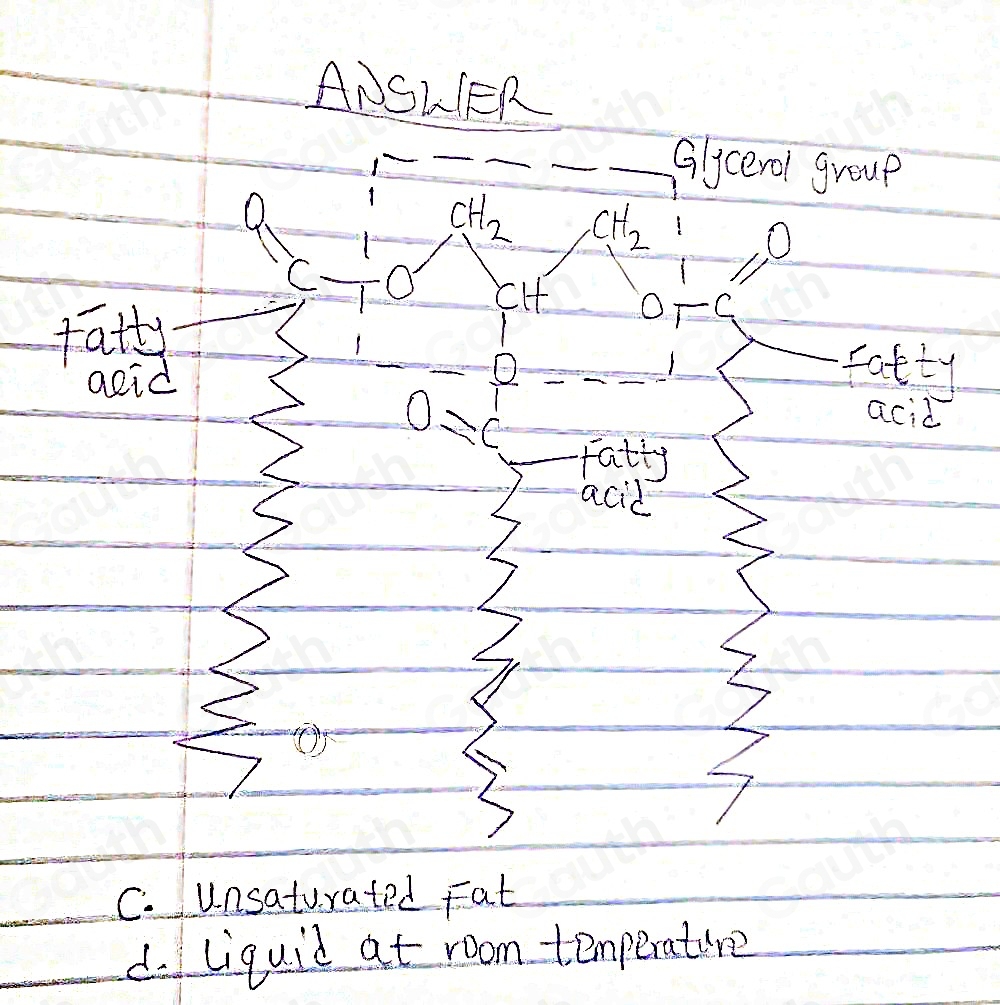 ANSWER
Glycerol group
O CH2 CH2 O
C O CH O C
Fatty
acid
O
Fatty
acid
O C
Fatty
acid
O
C. Unsaturated Fat
d. Liquid at room temperature
Gauth